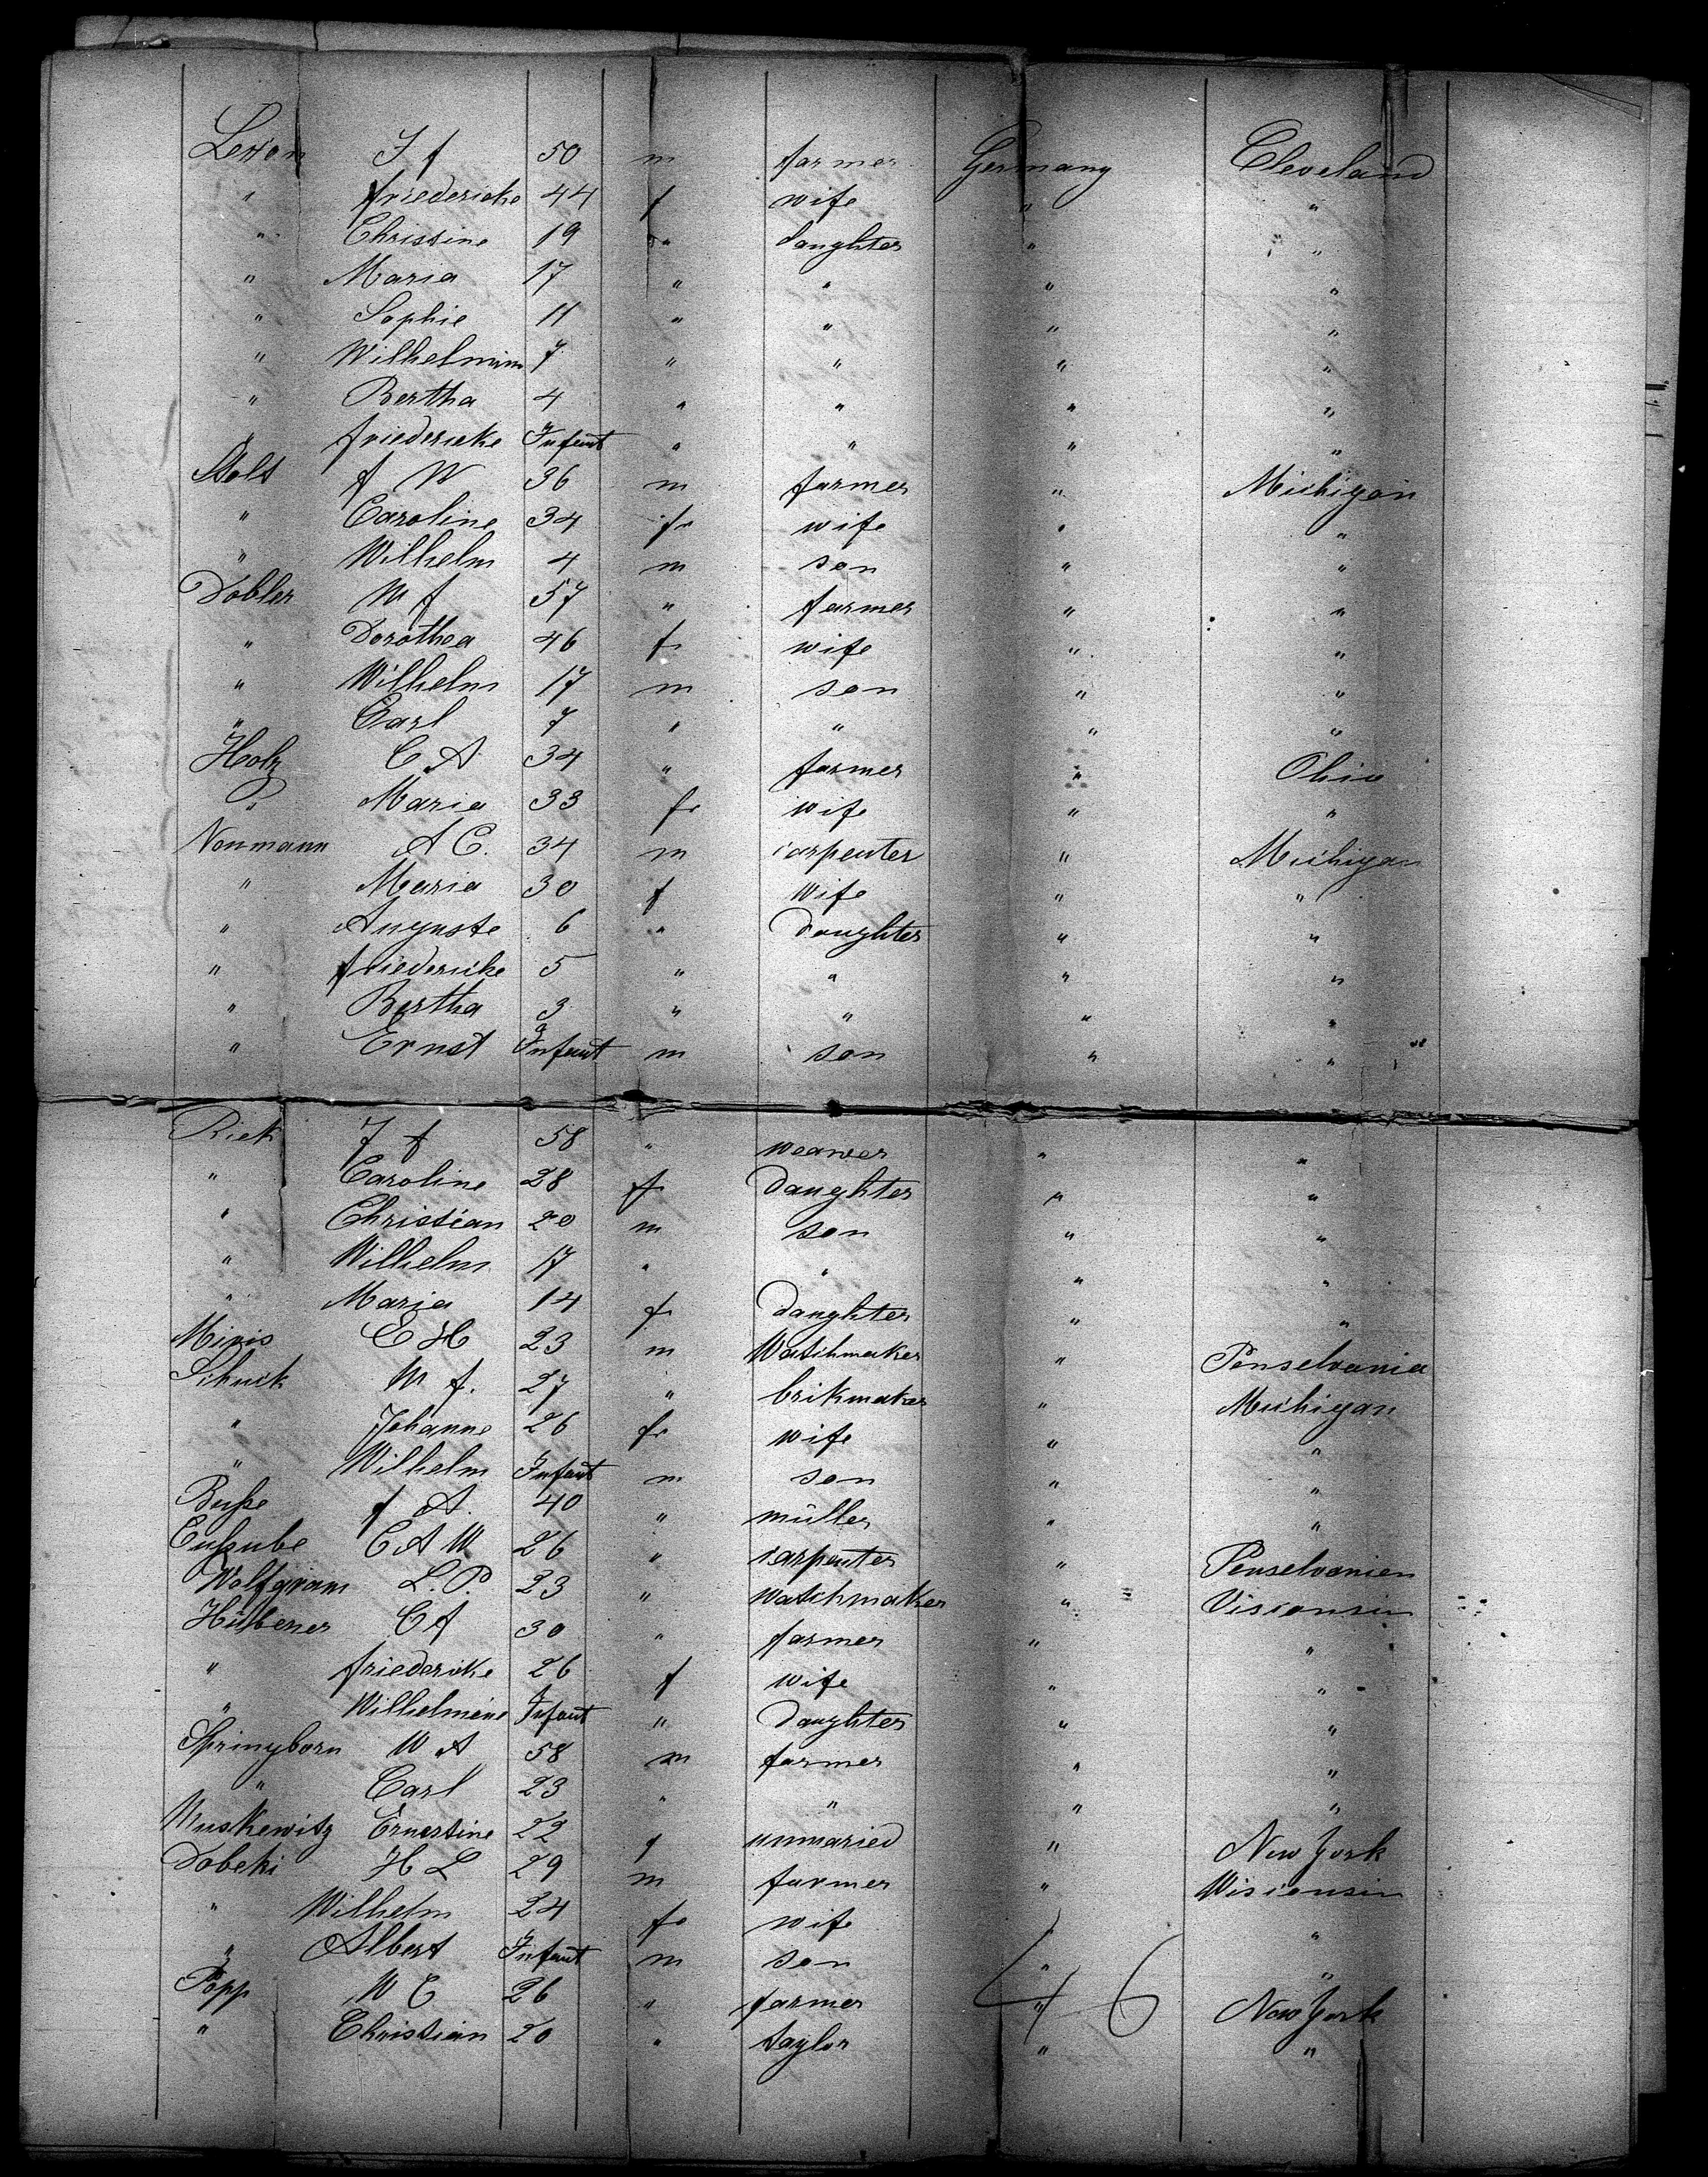 Lexon J f 50 m farmer Germany Cleveland
" friedericke 44 f wife " "
" Christine 19 " daughter " "
" Maria 17 " " " "
" Sophie 11 " " " "
" Wilhelmine 7 " " " "
" Bertha 4 " " " "
" friedericke Infant " " " "
Stolt f W 36 m farmer " Michigan
" Caroline 34 f wife " "
" Wilhelm 4 m son " "
Dobler W f 57 " farmer " "
" Dorothea 46 f wife " "
" Wilhelm 17 m son " "
" Carl 7 " " " "
Holz C A 34 " farmer " Ohio
" Maria 33 f wife " "
Nonmann A C. 34 m carpenter " Michigan
" Maria 30 f wife " "
" Auguste 6 " daughter " "
" friedericke 5 " " " "
" Bertha 3 " " " "
" Ernst Infant m son " "
Riek J f 58 " weawer " "
" Caroline 28 f daughter " "
" Christian 20 m son " "
" Wilhelm 17 " " " "
" Maria 14 f daughter " "
E H 23 m Watchmaker " Penselvania
Schuck W f. 27 " brikmaker " Michigan
" Johanne 26 f wife " "
" Wilhelm Infant m son " "
Buße f A. 40 " müller " "
C A W 26 " carpenter " Penselvanien
Wolfgram L. P. 23 " Watchmaker " Visconsin
Hübener C f 30 " farmer " "
" friedericke 26 f wife " "
" Wilhelmine Infant " daughter " "
Springborn W A 58 m farmer " "
" Carl 23 " " " "
Wuskewitz Ernestine 22 f unmaried " New York
Dobeki H L 29 m farmer " Wisconsin
" Wilhelm 24 f wife "
" Albert Infant m son " "
Popp W C 26 " farmer " New York
46
" Christian 20 " taylor " "